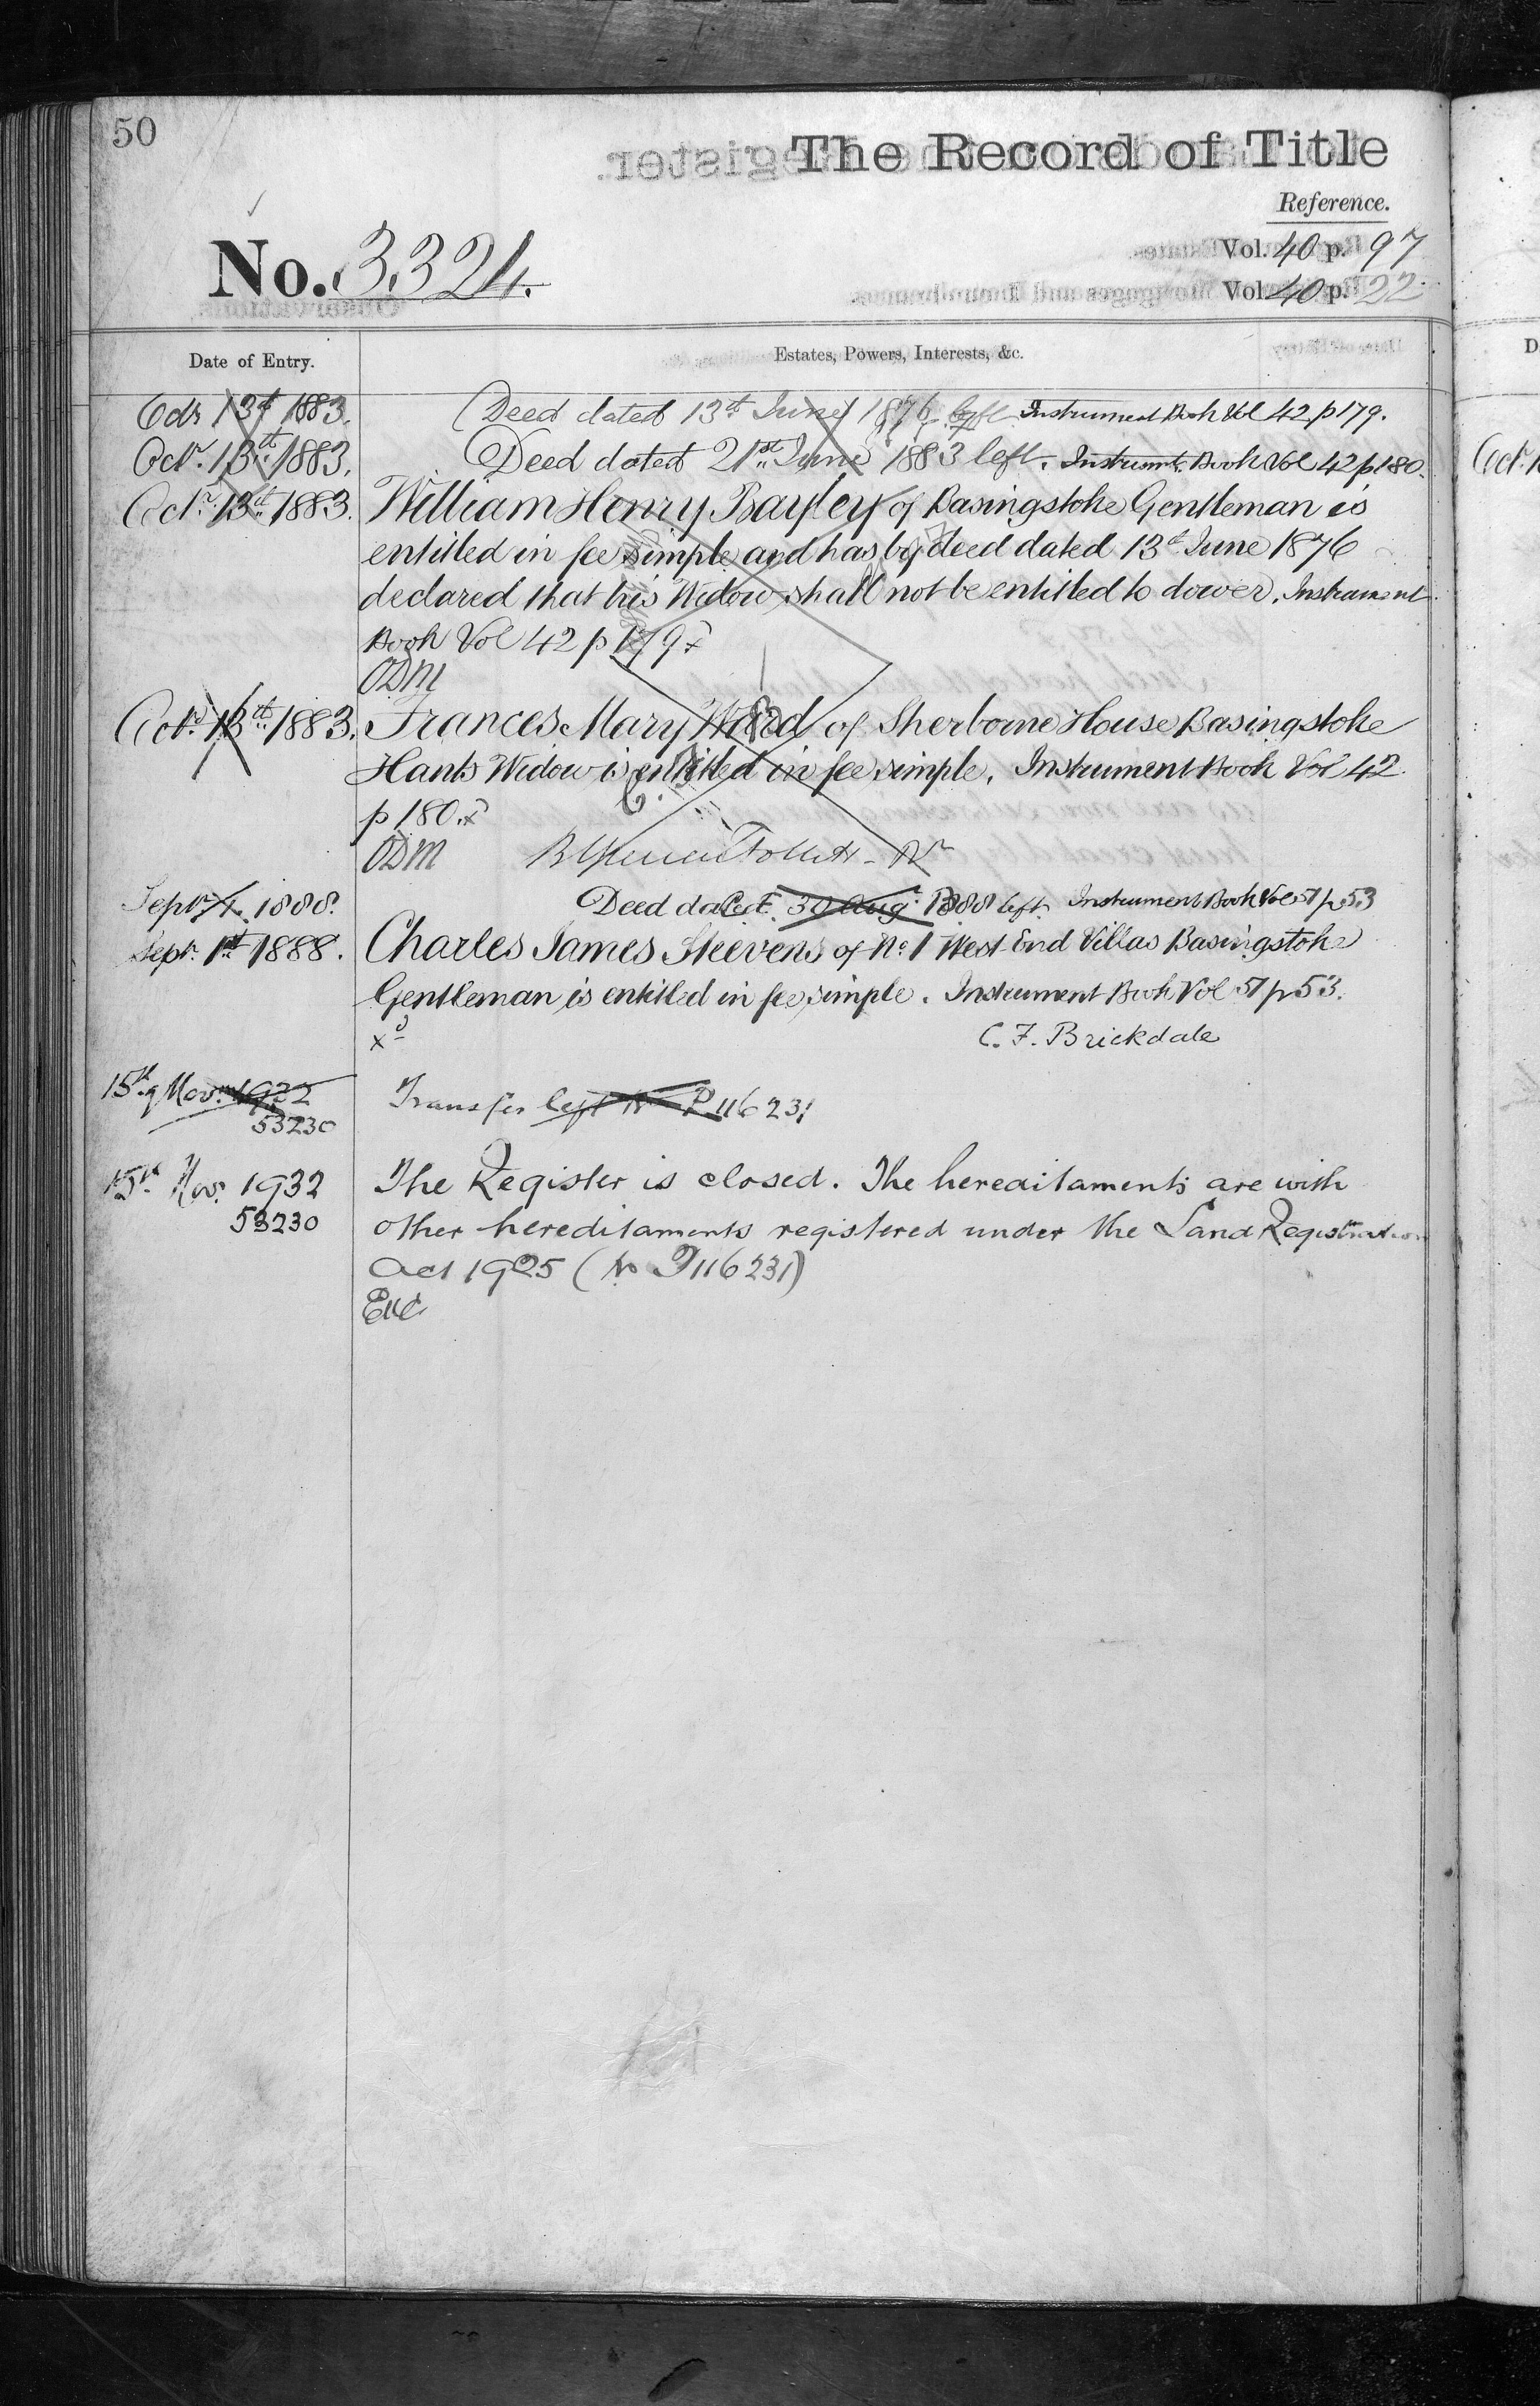 50
The Record of Title
Reference.
No. 3324.
Vol. 40 p. 97
Vol. 40 p. 22
Date of Entry.
Estates, Powers, Interests, &c.
Octr 13th 1883. Deed dated 13th June 1876 left Instrument Book Vol 42 p 179.
Octr. 13th 1883. Deed dated 21st June 1883 left. Instrumt. Book Vol 42 p 180.
Octr. 13th 1883. William Henry Bayley of Basingstoke Gentleman is
entitled in fee simple and has by deed dated 13th June 1876
declared that his Widow shall not be entitled to dower. Instrument
Book Vol 42 p 179 x
ODM
Octr. 13th 1883. Frances Mary Ward of Sherborne House Basingstoke
Hants Widow is entitled in fee simple. Instrument Book Vol 42
p 180. x
ODM
Septr. 1. 1888. Deed dated 30 Aug: 1888 left. Instrument Book Vol 51 p 53
Septr. 1st 1888. Charles James Steevens of No. 1 West End Villas Basingstoke
Gentleman is entitled in fee simple. Instrument Book Vol 51 p 53.
x
C. F. Brickdale
15th Novr. 1932 Transfer left No P 116231
53230
15th Nov. 1932 The Register is closed. The hereditaments are with
53230 other hereditaments registered under the Land Registration
Act 1925 (No P 116231)